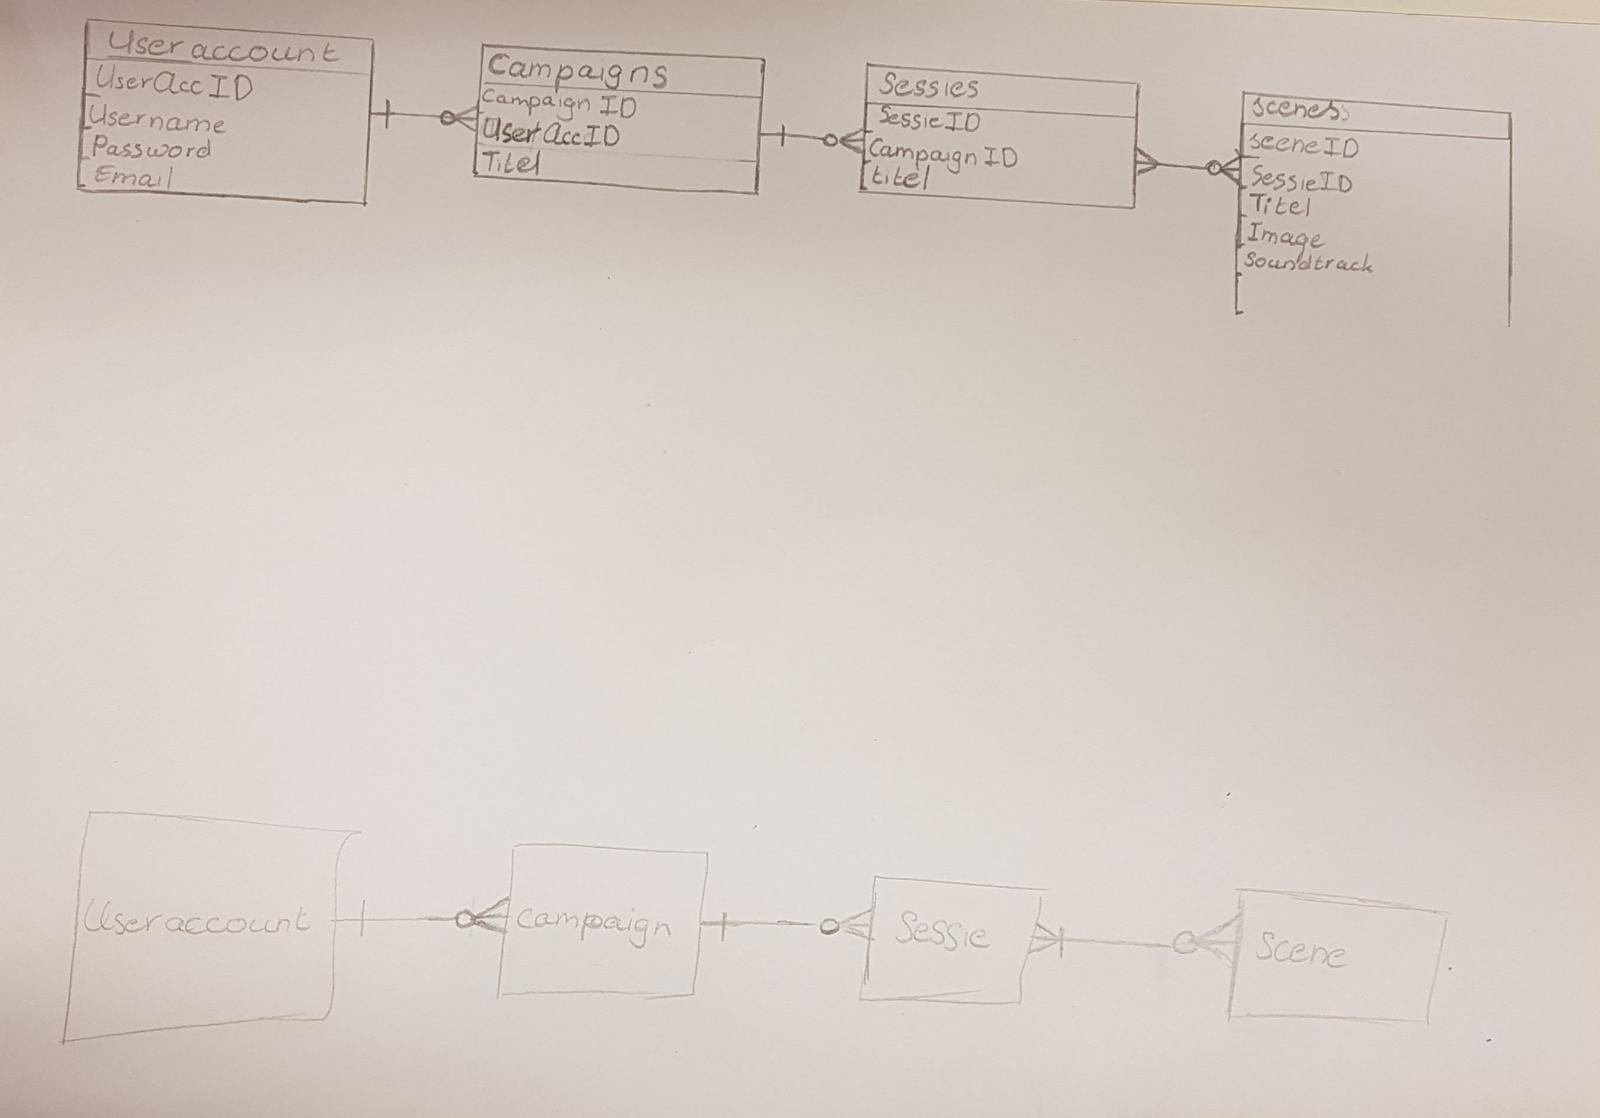 Useraccount
UserAccID
Username
Password
Email
Campaigns
Campaign ID
UserAccID
Titel
Sessies
SessieID
Campaign ID
titel
scenes
sceneID
SessieID
Titel
Image
Soundtrack
Useraccount
campaign
Sessie
Scene